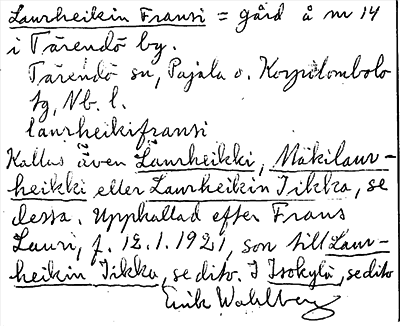 Laurheikin Fransi = gård å nr 14
i Tärendö by.
Tärendö sn, Pajala o. Korpilombolo
tg, Nb. l.
laurheikifransi
Kallas även Laurheikki, Mäkilaur-
heikki eller Laurheikin Iikka, se
dessa. Uppkallad efter Frans
Lauri, f. 12.1.1921, son till Laur-
heikin Iikka, se dito. I Isokylä, se dito
Erik Wahlberg